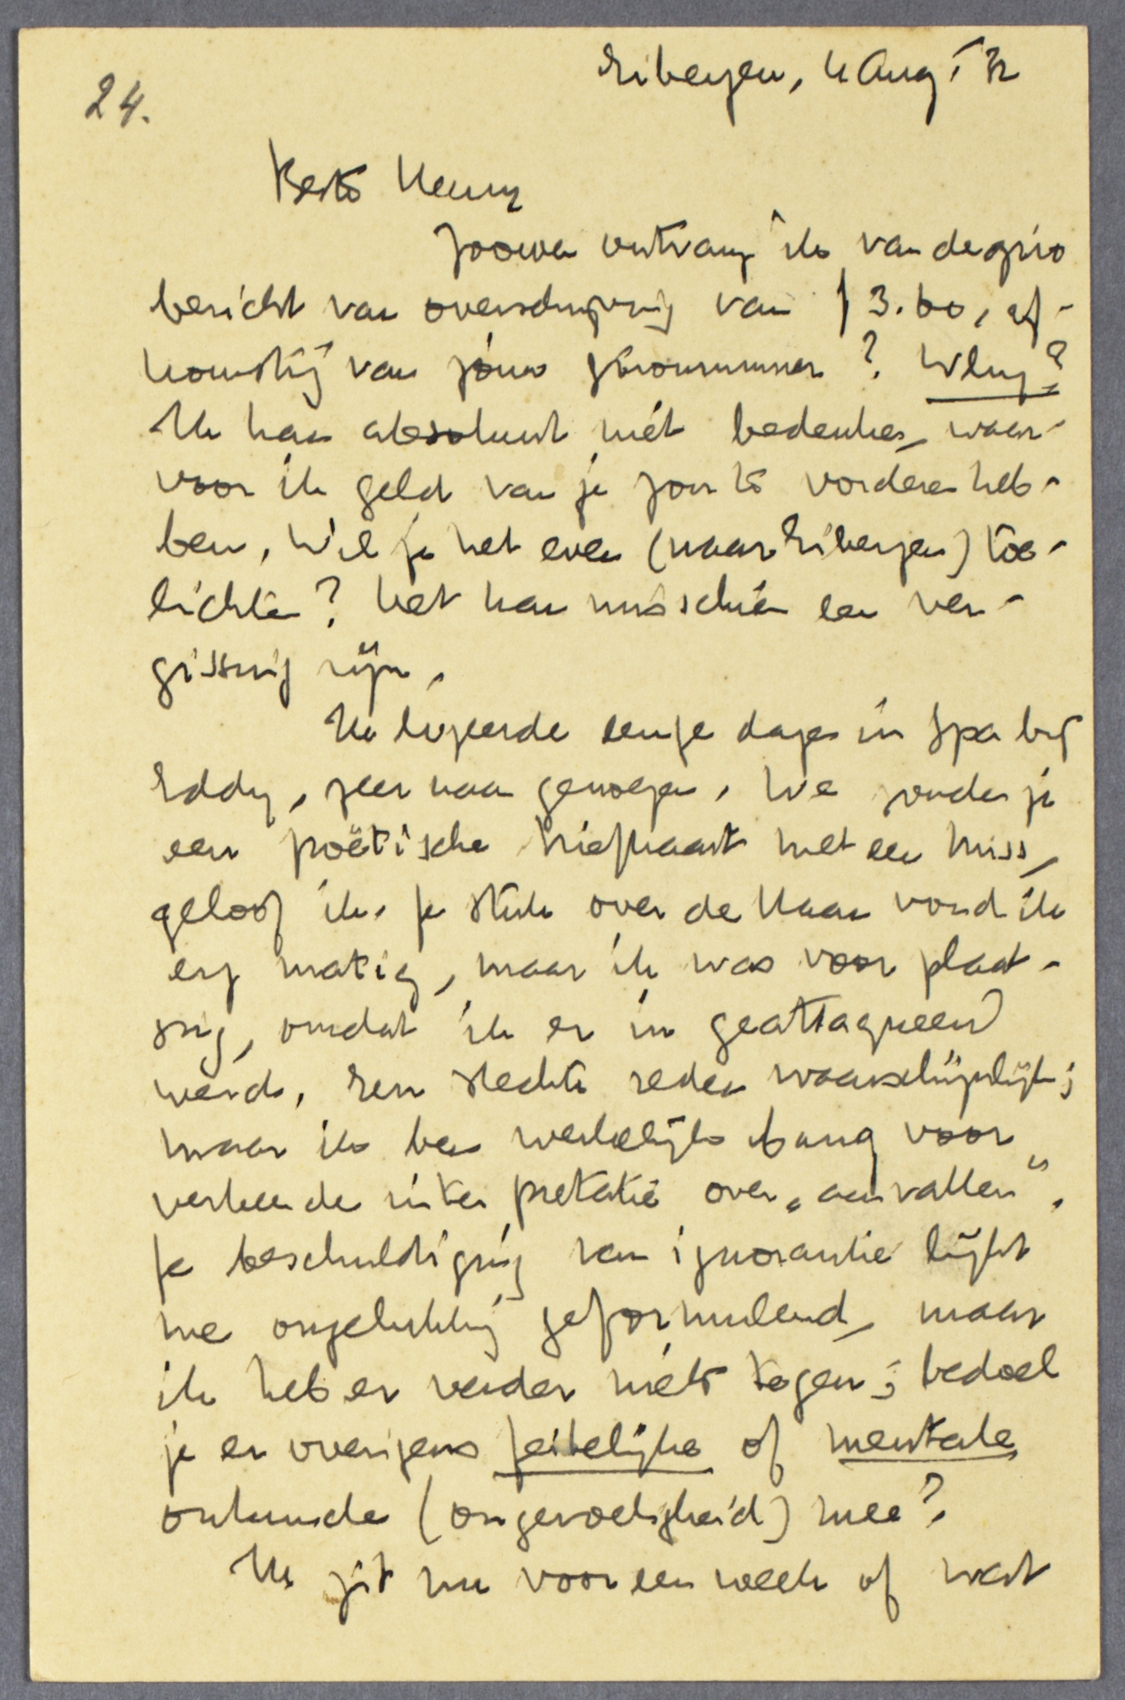 Eibergen, 4 Aug. '32
24.
Beste Henny
Zooeven ontvang ik van de giro
bericht van overschrijving van f 3.60, af-
komstig van jóúw gironummer? Why?
Ik kan absoluut niet bedenken, waar-
voor ik geld van je zou te vorderen heb-
ben. Wil je het even (naar Eibergen) toe-
lichten? Het kan misschien een ver-
gissing zijn.
Ik logeerde eenige dagen in Spa bij
Eddy, zeer naar genoegen. We zonden je
een poëtische briefkaart met een miss,
geloof ik. Je stuk over de Haan vond ik
erg matig, maar ik was voor plaat-
sing, omdat ik er in geattaqueerd
werd. Een slechte reden waarschijnlijk;
maar ik ben werkelijk bang voor
verkeerde interpretatie over „aanvallen".
Je beschuldiging van ignorantie lijkt
me ongelukkig geformuleerd, maar
ik heb er verder niets tegen; bedoel
je er overigens feitelijke of mentale
onkunde (ongevoeligheid) mee?
Ik zit nu voor een week of wat